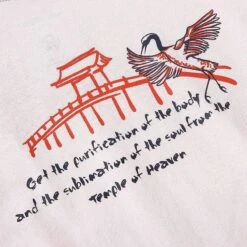 Get the purification of the body
and the sublimation of the soul from the
Temple of Heaven